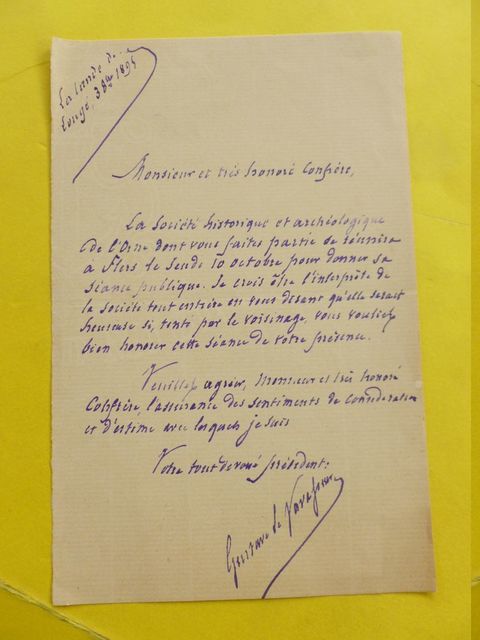 La Lande de
Lougé, 3 8bre 1895
Monsieur et très honoré Confrère,
La Société historique et archéologique
de l'Orne dont vous faites partie se réunira
à Flers le jeudi 10 octobre pour donner sa
séance publique. Je crois être l'interprète de
la société tout entière en vous disant qu'elle serait
heureuse si, tenté par le voisinage, vous vouliez
bien honorer cette séance de votre présence.
Veuillez agréer, Monsieur et très honoré
Confrère, l'assurance des sentiments de considération
et d'estime avec lesquels je suis
Votre tout dévoué président:
Gustave Le Vavasseur